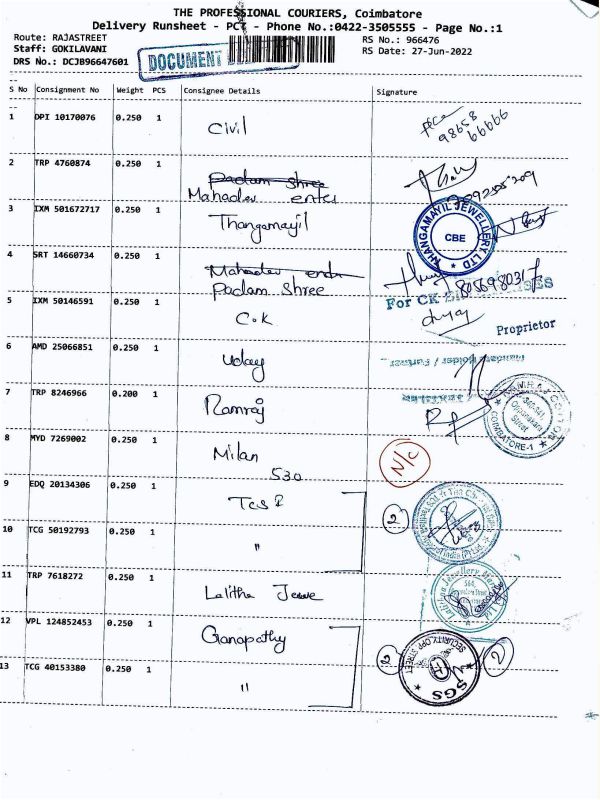 THE PROFESSIONAL COURIERS, Coimbatore
Delivery Runsheet - PCT - Phone No.:0422-3505555 - Page No.:1
Route: RAJASTREET
RS No.: 966476
Staff: GOKILAVANI
RS Date: 27-Jun-2022
DRS No.: DCJB96647601
DOCUMENT
S No Consignment No Weight PCS Consignee Details Signature
1 DPI 10170076 0.250 1 Civil
98658
66666
2 TRP 4760874 0.250 1 Padam Shree
Mahadev enter
3 IXM 501672717 0.250 1 Thangamayil
THANGAMAYIL JEWELLERY LTD
CBE
4 SRT 14660734 0.250 1 Mahadev
Padam Shree
For CK
5 IXM 50146591 0.250 1 C.K
Proprietor
6 AMD 25066851 0.250 1 Uday
7 TRP 8246966 0.200 1 Ramraj
COIMBATORE-1
8 MYD 7269002 0.250 1 Milan
N/C
530
9 EDQ 20134306 0.250 1 Tcs
2
10 TCG 50192793 0.250 1 "
11 TRP 7618272 0.250 1 Lalitha Jewe
12 VPL 124852453 0.250 1 Ganapathy
2 2
SGS SECURITY
13 TCG 40153380 0.250 1 "